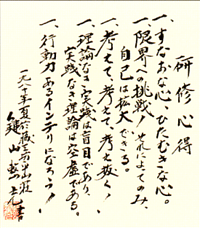 研修心得
一、すなおな心、ひたむきな心。
一、限界へ挑戦！それによってのみ、
自己は拡大できる。
一、考えて、考えて、考え抜く！
一、理論なき実践は盲目であり、
実践なき理論は空虚である。
一、行動力あるインテリになろう！